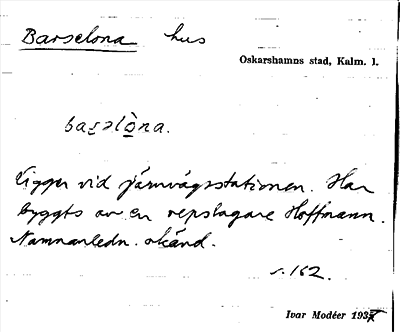 Barselona hus
Oskarshamns stad, Kalm. l.
basəlòna.
Ligger vid järnvägsstationen. Har
byggts av en repslagare Hoffmann.
Namnanledn. okänd.
s. 162.
Ivar Modéer 193